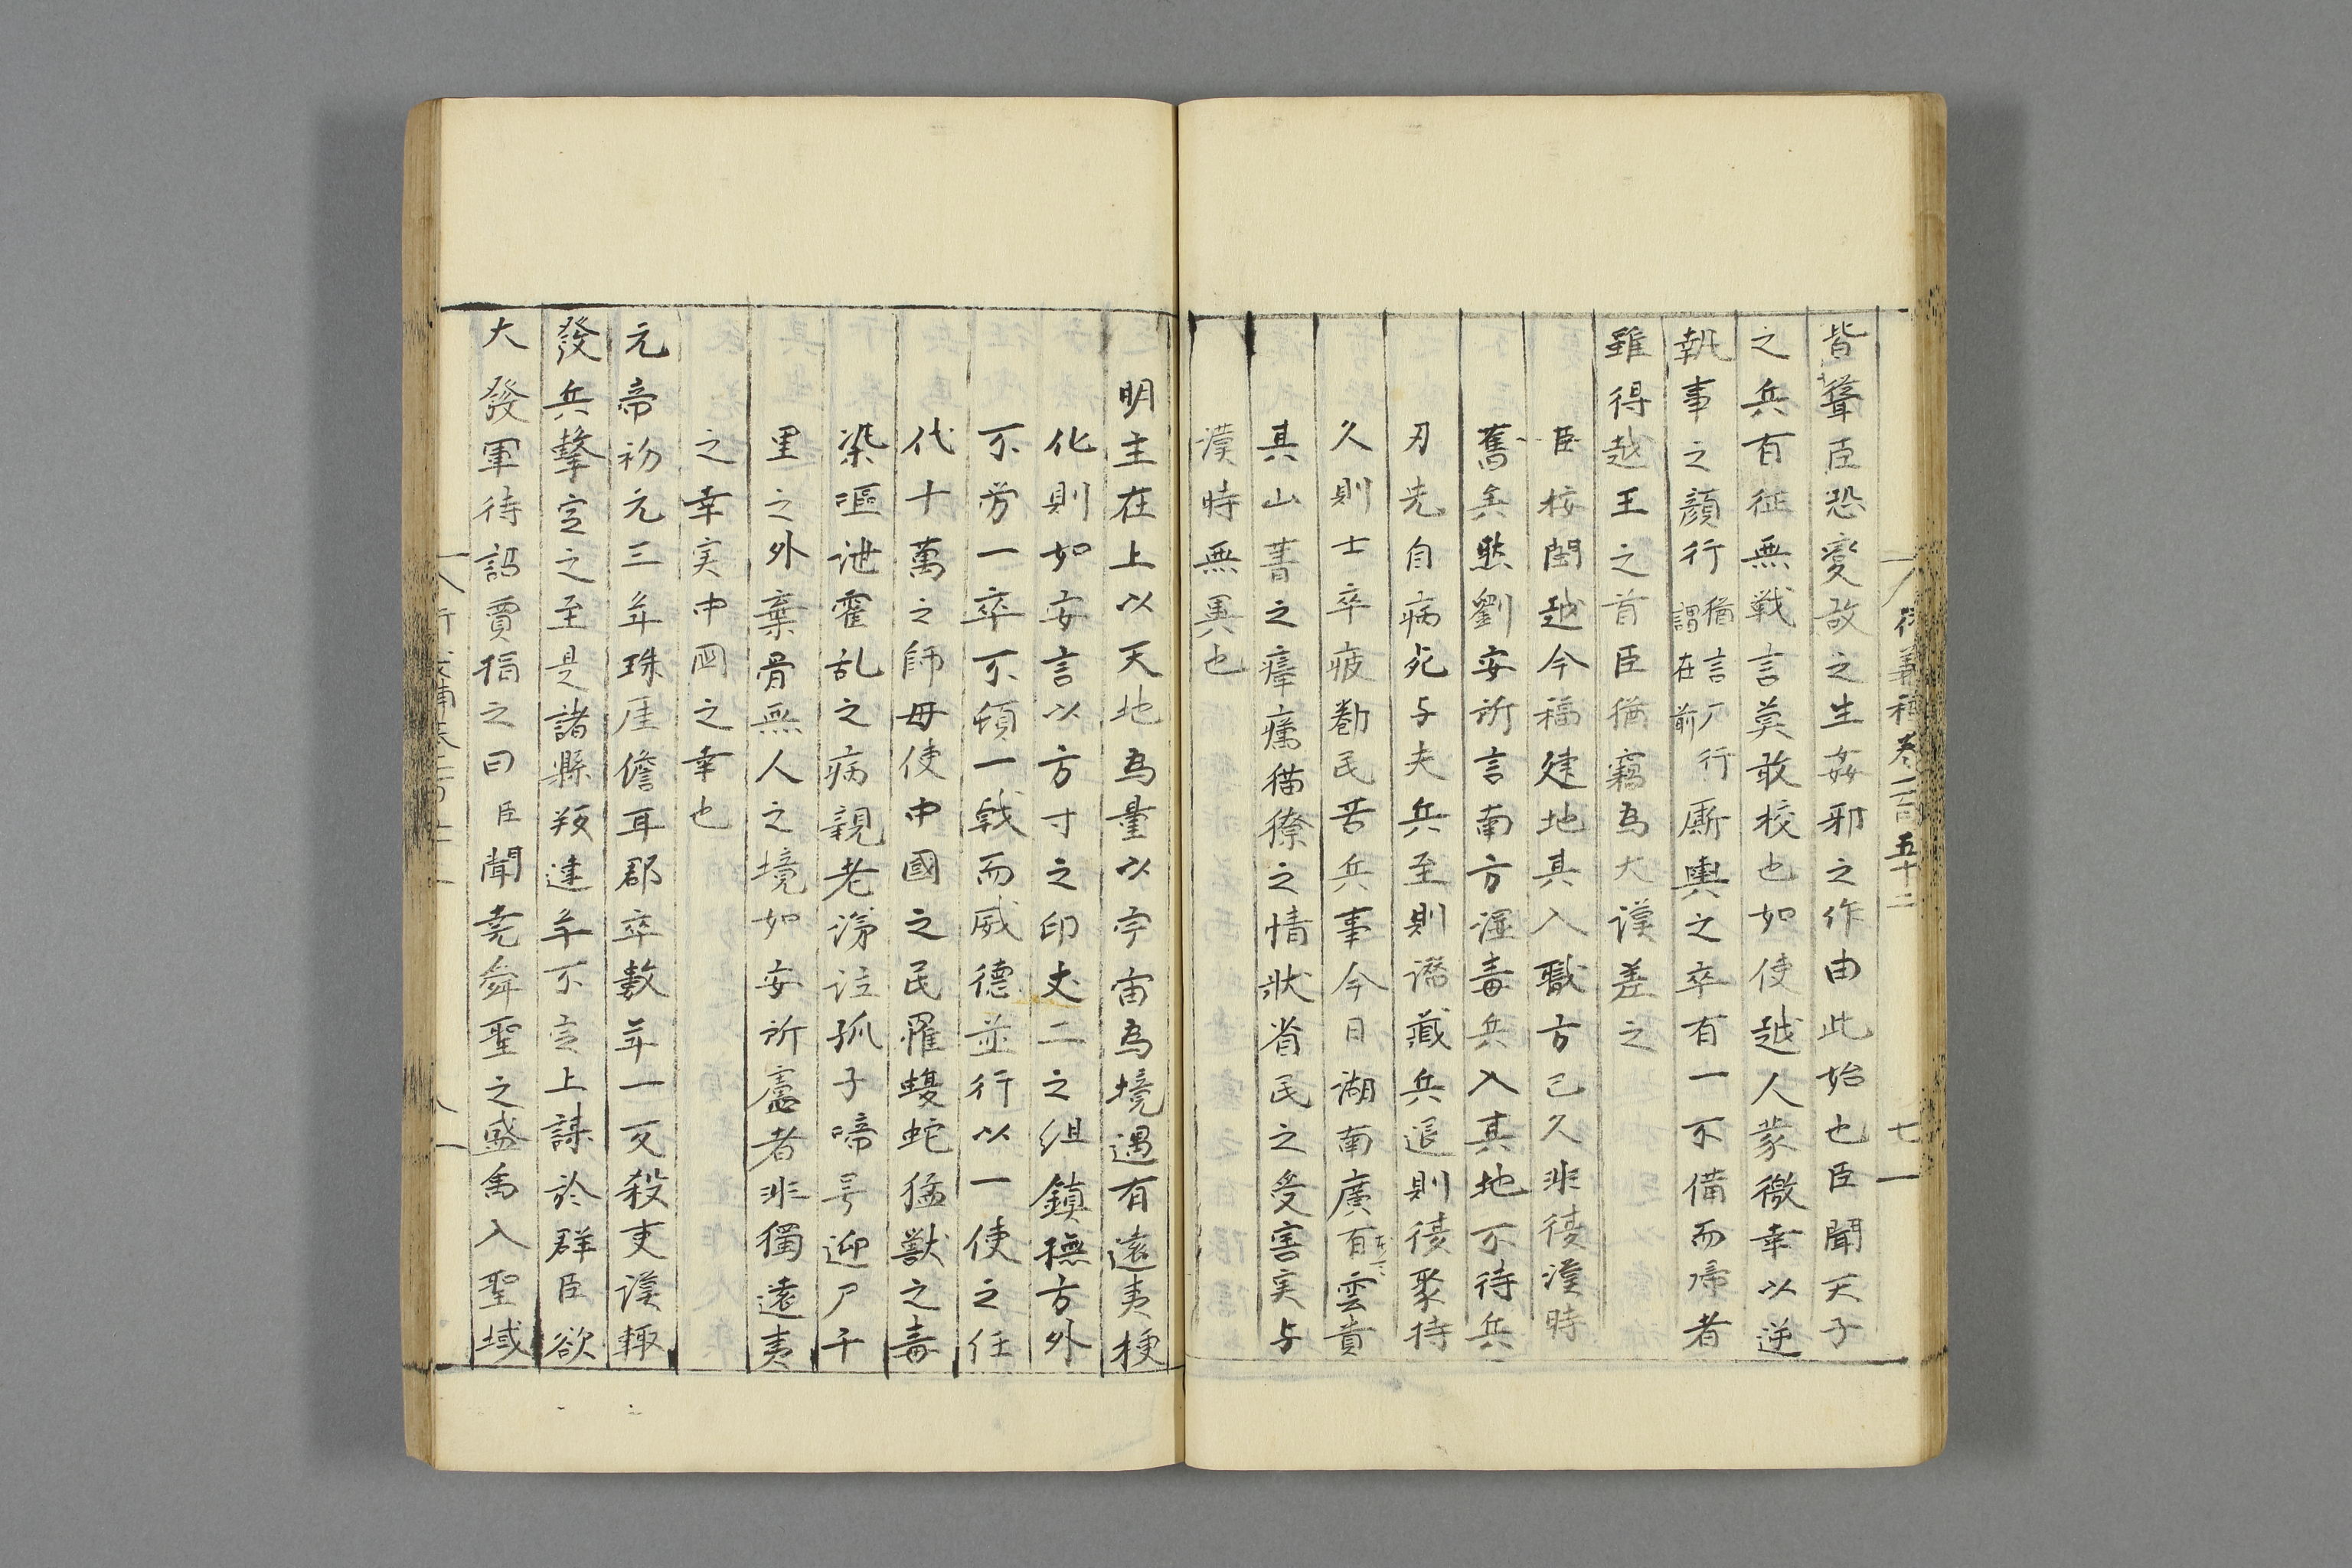 衍義補卷一百五十二
七一
皆聳臣恐變故之生姦邪之作由此始也臣聞天子
之兵有征無戰言莫敢校也如使越人蒙徼幸以逆
執事之顔行猶言厂行謂在前厮輿之卒有一不備而帰者
雖得越王之首臣猶竊為大漢羞之
臣按閩越今福建地其入職方已久非復漢時
舊矣然劉安所言南方溼毒兵入其地不待兵
刃先自病死与夫兵至則潛藏兵退則復聚持
久則士卒疲勌民苦兵事今日湖南廣西雲貴
其山菁之瘴癘猫獠之情狀省民之受害实与
漢時無異也
明主在上以天地為量以宇宙為境遇有遠夷梗
化則如安言以方寸之印丈二之組鎮撫方外
不劳一卒不頓一戟而威德並行以一使之任
代十萬之師毋使中國之民罹蝮蛇猛獸之毒
染漚泄霍乱之病親老涕泣孤子啼号迎尸千
里之外棄骨無人之境如安所慮者非獨遠夷
之幸实中国之幸也
元帝初元三年珠厓儋耳郡卒數年一反殺吏漢輒
發兵擊定之至是諸縣叛連年不定上謀於群臣欲
大發軍待詔賈捐之曰臣聞堯舜聖之盛禹入聖域